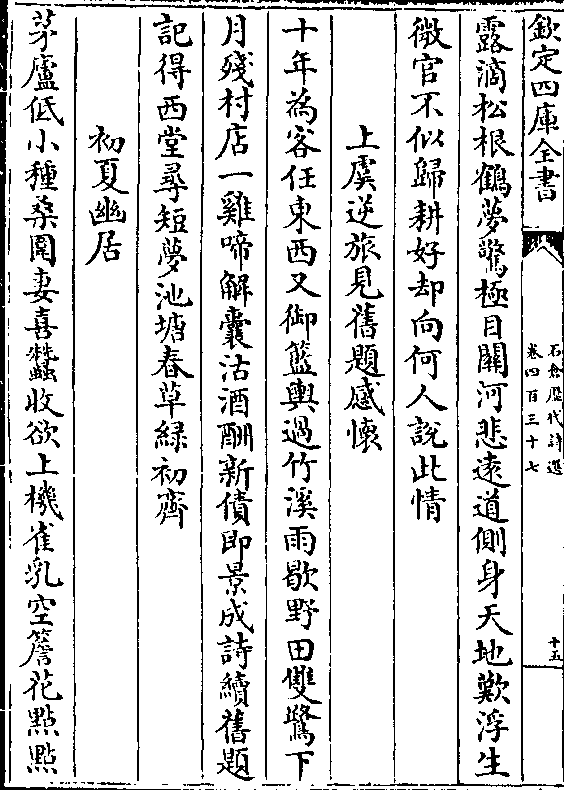 欽定四庫全書
石倉歷代詩選
卷四百三十七
十五
露滴松根鶴夢驚極目關河悲遠道側身天地歎浮生
微官不似歸耕好却向何人說此情
上虞逆旅見舊題感懷
十年為客任東西又御籃輿過竹溪雨歇野田雙鷺下
月殘村店一雞啼解囊沽酒酬新債即景成詩續舊題
記得西堂尋短夢池塘春草緑初齊
初夏幽居
茅廬低小種桑園妻喜蠶收欲上機雀乳空簷花點點